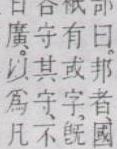 部曰。邦者、國
祇有或字、旣
各守其守、不
日廣。以爲凡